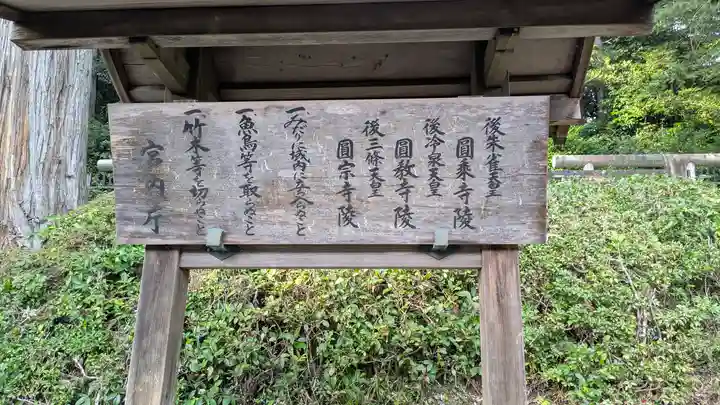 後朱雀天皇
圓乘寺陵
後冷泉天皇
圓教寺陵
後三條天皇
圓宗寺陵
一みだりに域内に立入らぬこと
一魚鳥等を取らぬこと
一竹木等を切らぬこと
宮内庁